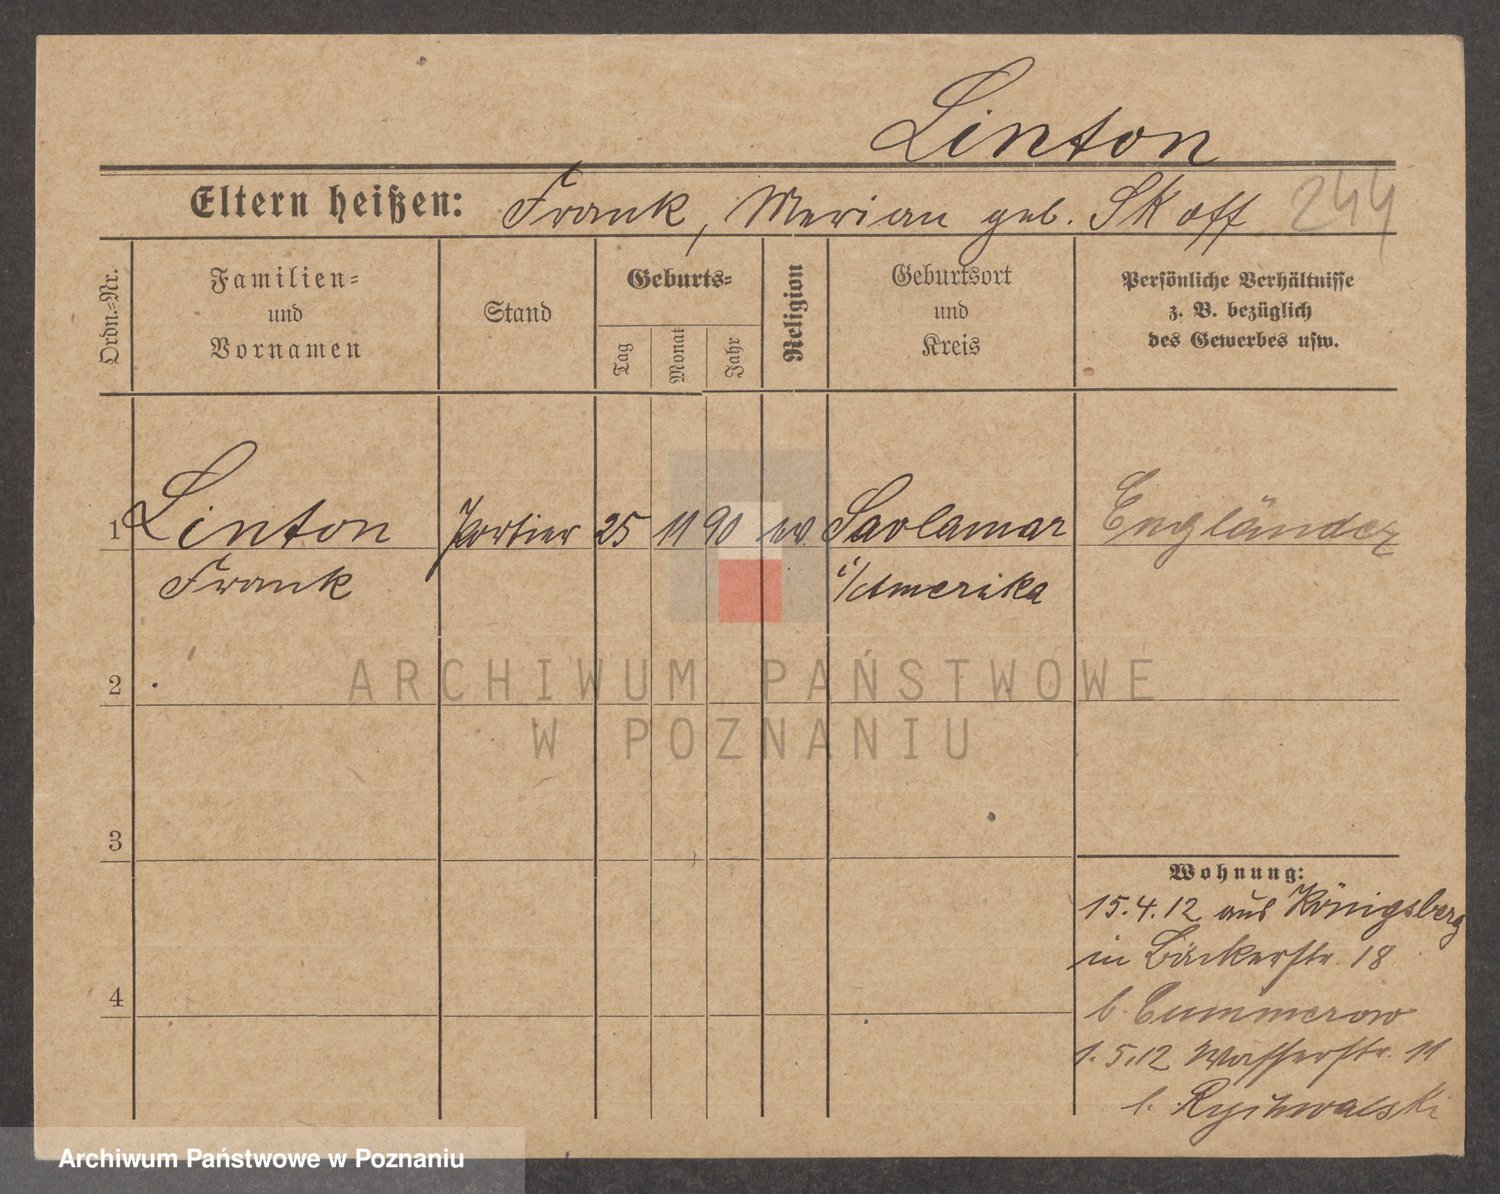 Linton
Eltern heißen: Frank, Merian geb. Skoff 244
Ordn.=Nr.
Familien=
und
Vornamen
Stand
Geburts=
Tag
Monat
Jahr
Religion
Geburtsort
und
Kreis
Persönliche Verhältnisse
z. B. bezüglich
des Gewerbes usw.
1 Linton Portier 25 11 90 ev. Savlamar Engländer
Frank i/Amerika
2
ARCHIWUM PAŃSTWOWE
W POZNANIU
3
Wohnung:
15.4.12 aus Königsberg
in Bäckerstr. 18
4
b. Cummerow
1.5.12 Wasserstr. 11
b. Rychwalski
Archiwum Państwowe w Poznaniu